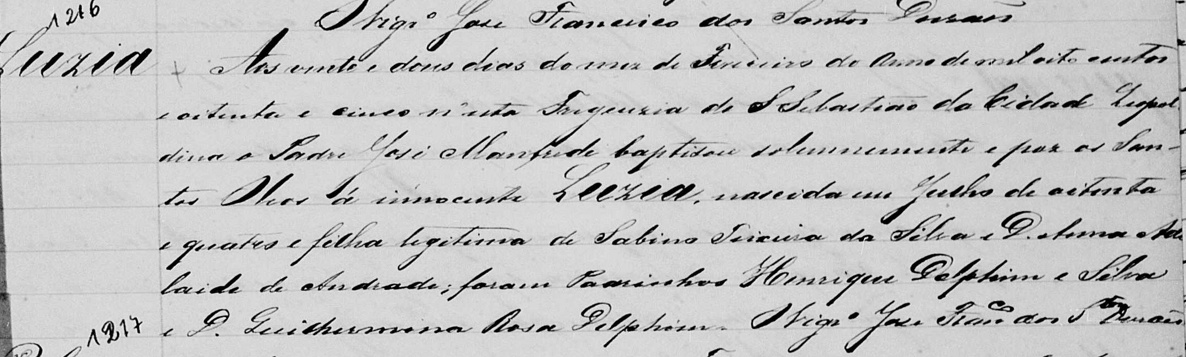 1216
O Vigrº José Francisco dos Santos Durães
Luzia
Aos vinte e dous dias do mez de Fevereiro do Anno de mil oito centos
e oitenta e cinco n'esta Freguezia de S Sebastião da Cidade Leopol
dina o Padre José Manfrede baptisou solemnemente e poz os San-
tos Oleos á innocente Luzia, nascida em Julho de oitenta
e quatro e filha legitima de Sabino Teixeira da Silva e D. Anna Ade
laide de Andrade; foram Padrinhos Henrique Delphim e Silva
e D. Guilhermina Rosa Delphim. O Vigrº José Franco dos Stos Durães
1217